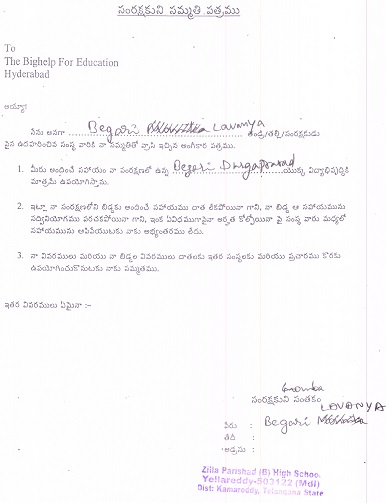 సంరక్షకుని సమ్మతి పత్రము
To
The Bighelp For Education
Hyderabad
అయ్యా!
నేను అనగా Begari Lavanya తండ్రి/తల్లి/సంరక్షకుడు
పైన ఉదహరించిన సంస్థ వారికి నా సమ్మతితో వ్రాసి ఇచ్చిన అంగీకార పత్రము.
1. మీరు అందించే సహాయం నా సంరక్షణలో ఉన్న Begari Durgaprasad యొక్క విద్యాభివృద్ధికి
మాత్రమే ఉపయోగిస్తాను.
2. ఇట్లూ నా సంరక్షణలోని బిడ్డకు అందించే సహాయము దాత లేకపోయినా గాని, నా బిడ్డ ఆ సహాయమును
సద్వినియోగము పరచకపోయినా గాని, ఇంక ఏవిధముగానైనా అర్హత కోల్పోయినా పై సంస్థ వారు మధ్యలో
సహాయమును ఆపివేయుటకు నాకు అభ్యంతరము లేదు.
3. నా వివరములు మరియు నా బిడ్డల వివరములు దాతలకు ఇతర సంస్థలకు మరియు ప్రచారము కొరకు
ఉపయోగించుకొనుటకు నాకు సమ్మతము.
ఇతర వివరములు ఏమైనా :-
సంరక్షకుని సంతకం
LAVANYA
పేరు : Begari
తేది :
అడ్రసు :
Zilla Parishad (B) High School
Yellareddy-503122 (Mdl)
Dist: Kamareddy, Telangana State